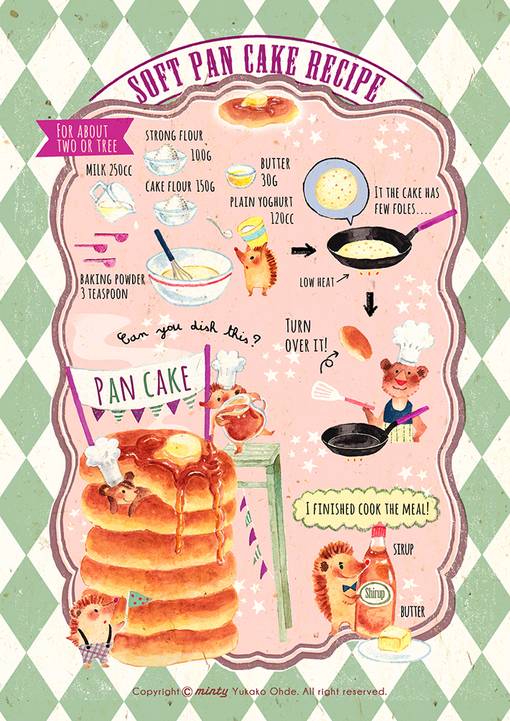 SOFT PAN CAKE RECIPE
FOR ABOUT
TWO OR TREE
STRONG FLOUR
100G
MILK 250CC
CAKE FLOUR 150G
BUTTER
30G
PLAIN YOGHURT
120CC
BAKING POWDER
3 TEASPOON
IT THE CAKE HAS
FEW FOLES....
LOW HEAT
Can you dish this?
TURN
OVER IT!
PAN CAKE
I FINISHED COOK THE MEAL!
SIRUP
Shirup
BUTTER
Copyright © minty Yukako Ohde. All right reserved.